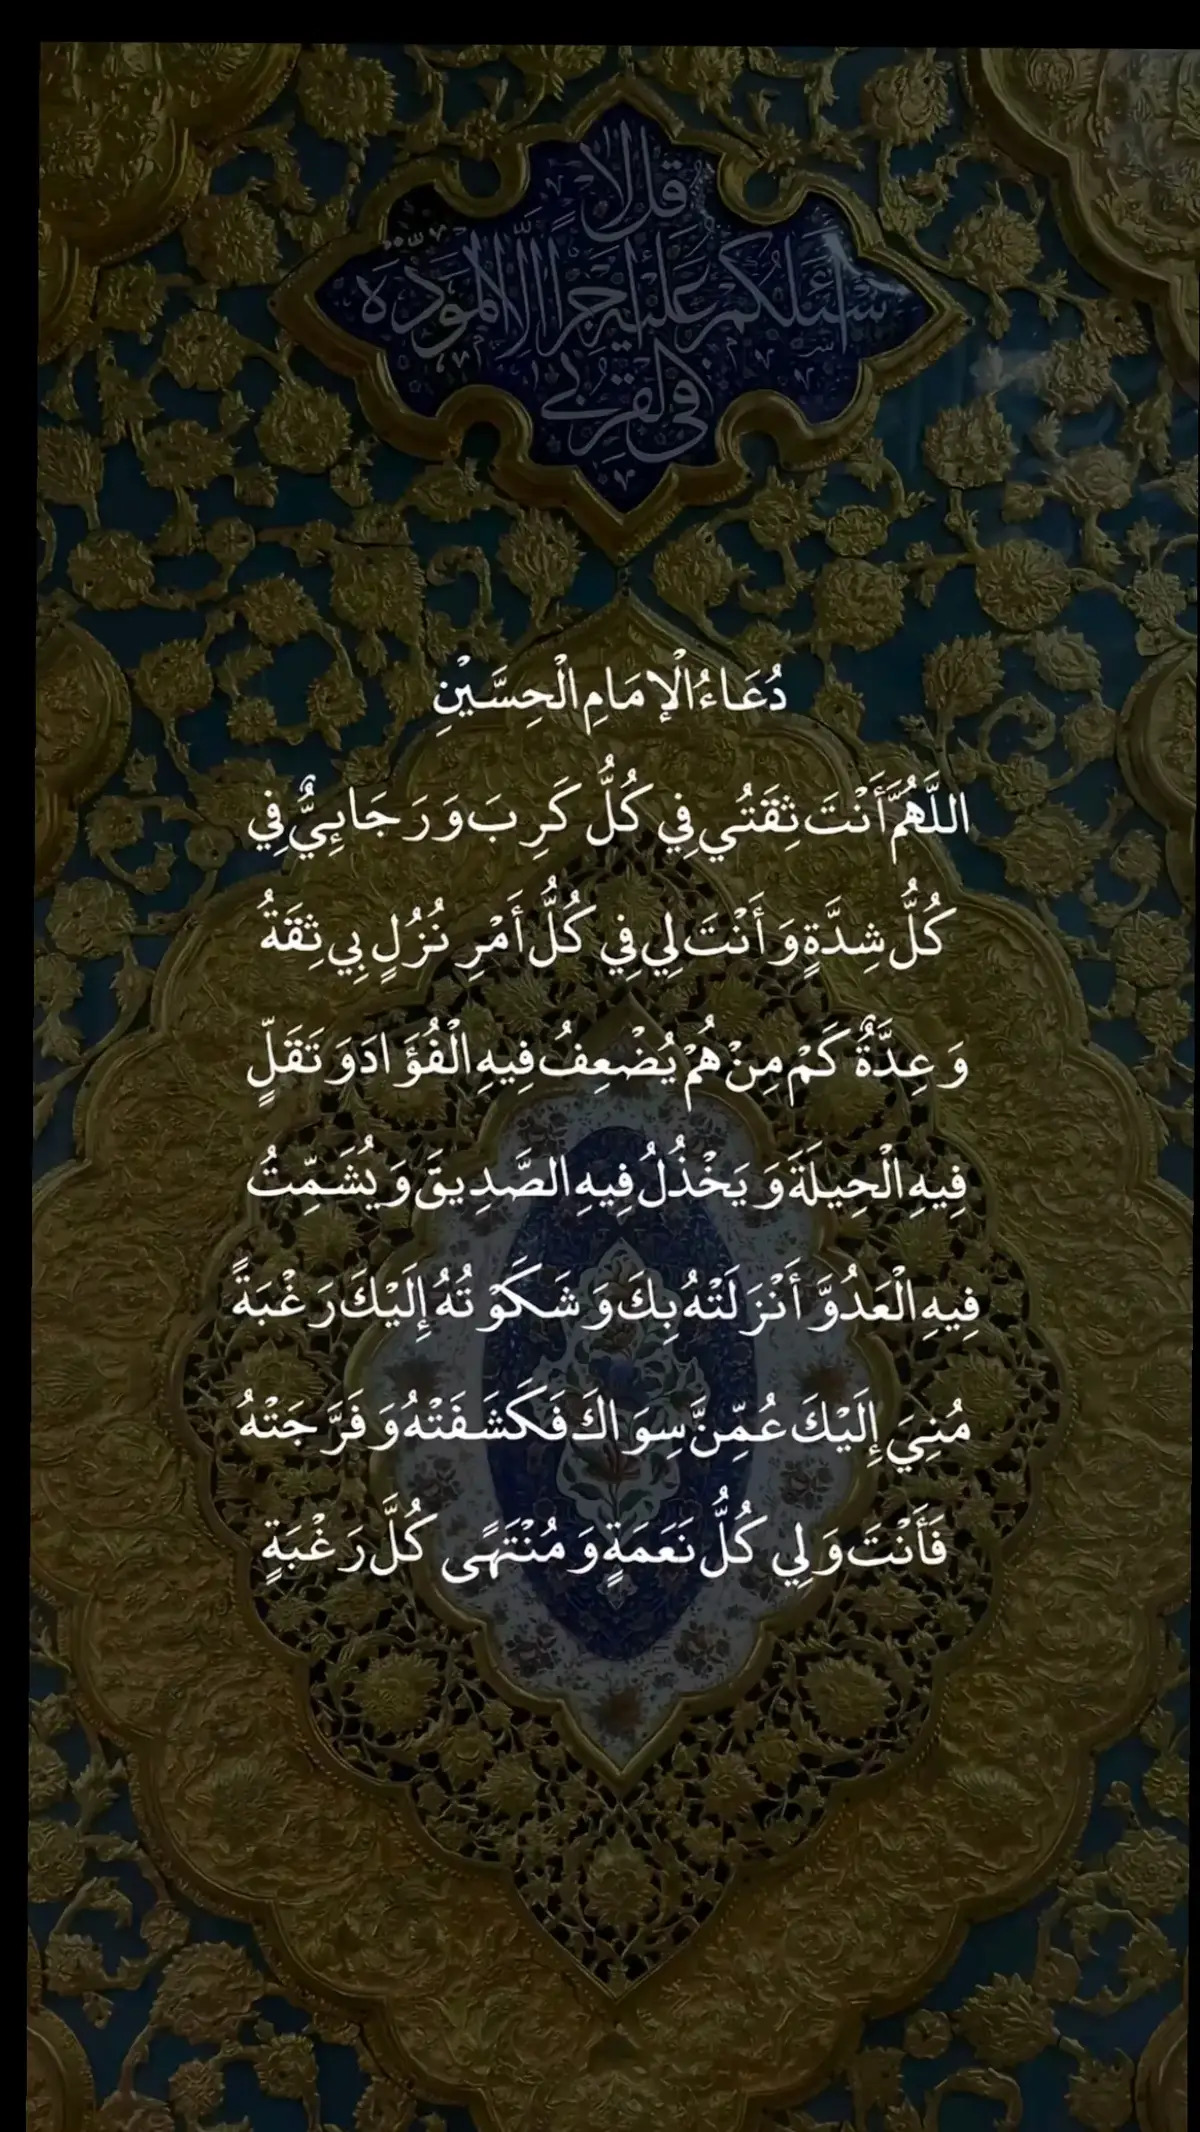 قل لا
أسئلكم عليه أجرا إلا المودة
في القربى
دُعَاءُ الْإمَامِ الْحِسَّيْنِ
اللَّهُمَّ أَنْتَ ثِقَتُي فِي كُلُّ كَرِبَ وَرَجَائِيٌّ فِي
كُلُّ شِدَّةٍ وَأَنْتَ لِي فِي كُلُّ أَمْرِ نُزُلٍ بِي ثِقَةُ
وَعِدَّةٌ كَمْ مِنْ هُمْ يُضْعِفُ فِيهِ الْفُؤَادَ وَتَقَلٍّ
فِيهِ الْحِيلَةَ وَيَخْذُلُ فِيهِ الصَّدِيقَ وَيُشَمِّتُ
فِيهِ الْعَدُوَّ أَنْزَلَتْهُ بِكَ وَشَكَوْتُهُ إِلَيْكَ رَغْبَةً
مُنِيَ إِلَيْكَ عُمِّنَّ سِوَاكَ فَكَشَفَتْهُ وَفَرَّجَتْهُ
فَأَنْتَ وَلِي كُلُّ نَعَمَةٍ وَمُنْتَهًى كُلَّ رَغْبَةٍ